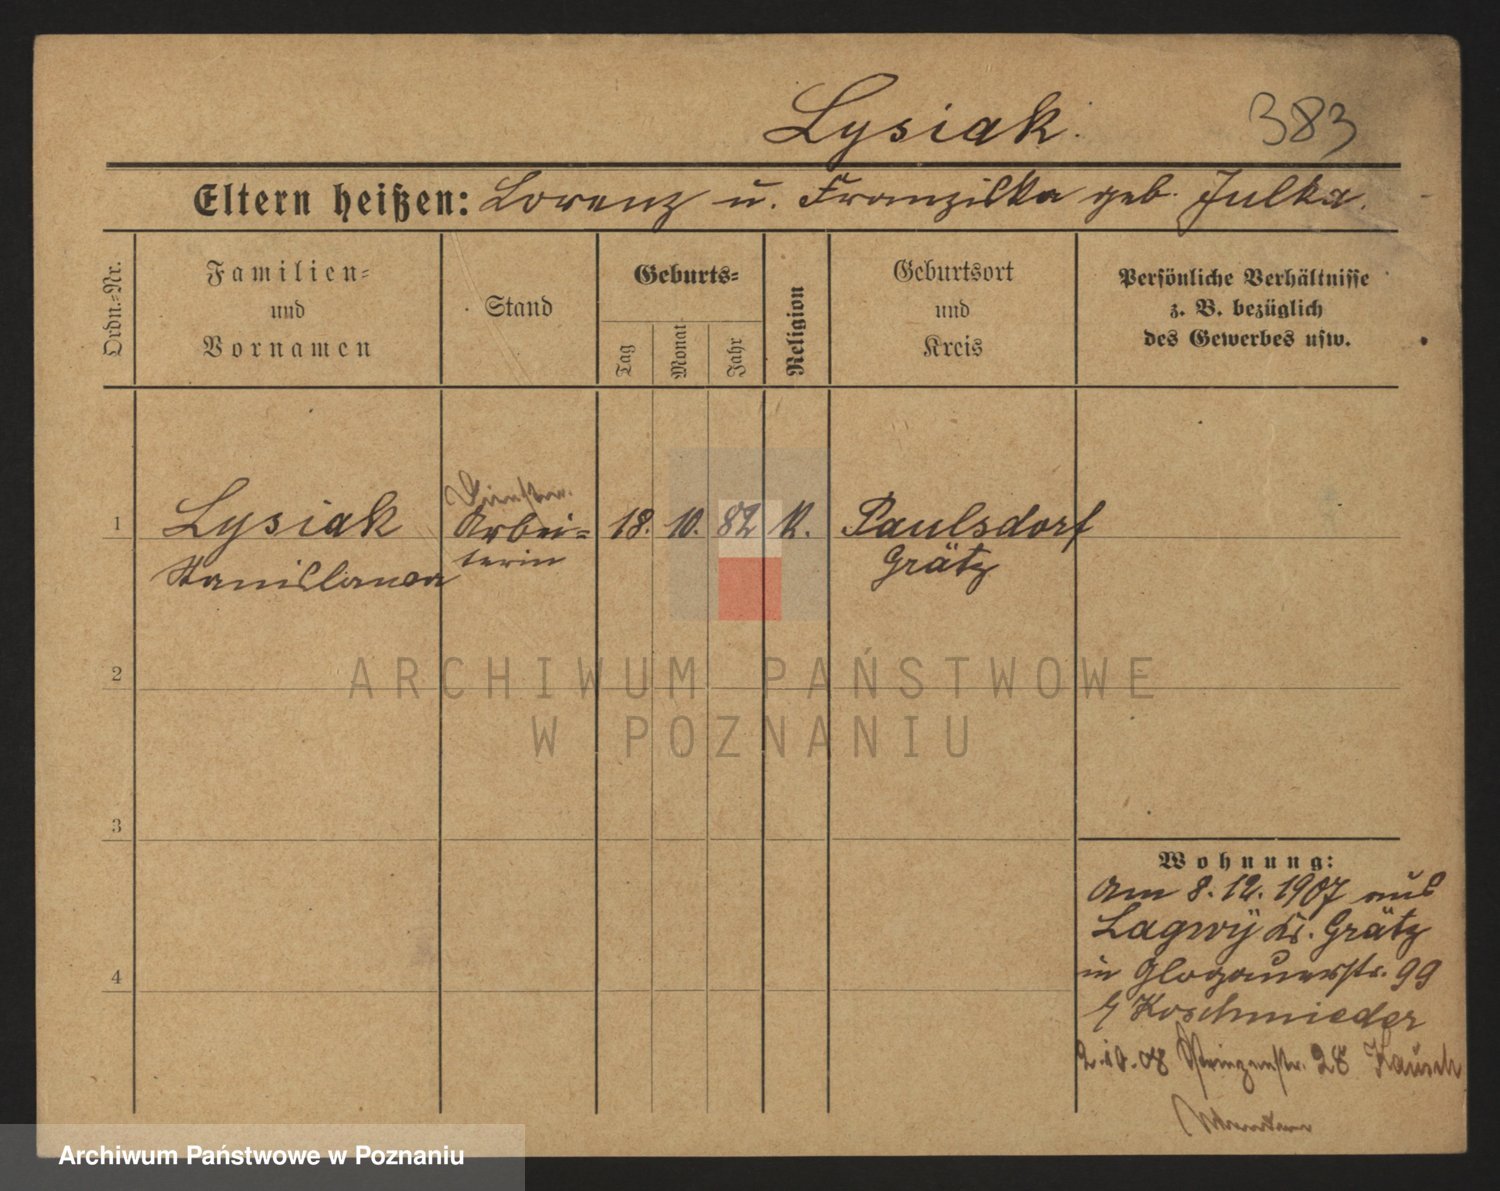 Lysiak.
383
Eltern heißen: Lorenz u. Franziska geb. Julka.
Ordn.-Nr.
Familien-
und
Vornamen
Stand
Geburts-
Tag
Monat
Jahr
Religion
Geburtsort
und
Kreis
Persönliche Verhältnisse
z. B. bezüglich
des Gewerbes usw.
1
Lysiak
Stanislawa
Arbei-
terin
18. 10. 82 K.
Paulsdorf
Grätz
2
ARCHIWUM PAŃSTWOWE
W POZNANIU
3
4
Wohnung:
Am 8.12.1907 aus
Lagwÿ Kr. Grätz
in Glogauerstr. 99
Koschmieder
2.10.08 Prinzenstr. 28
Archiwum Państwowe w Poznaniu